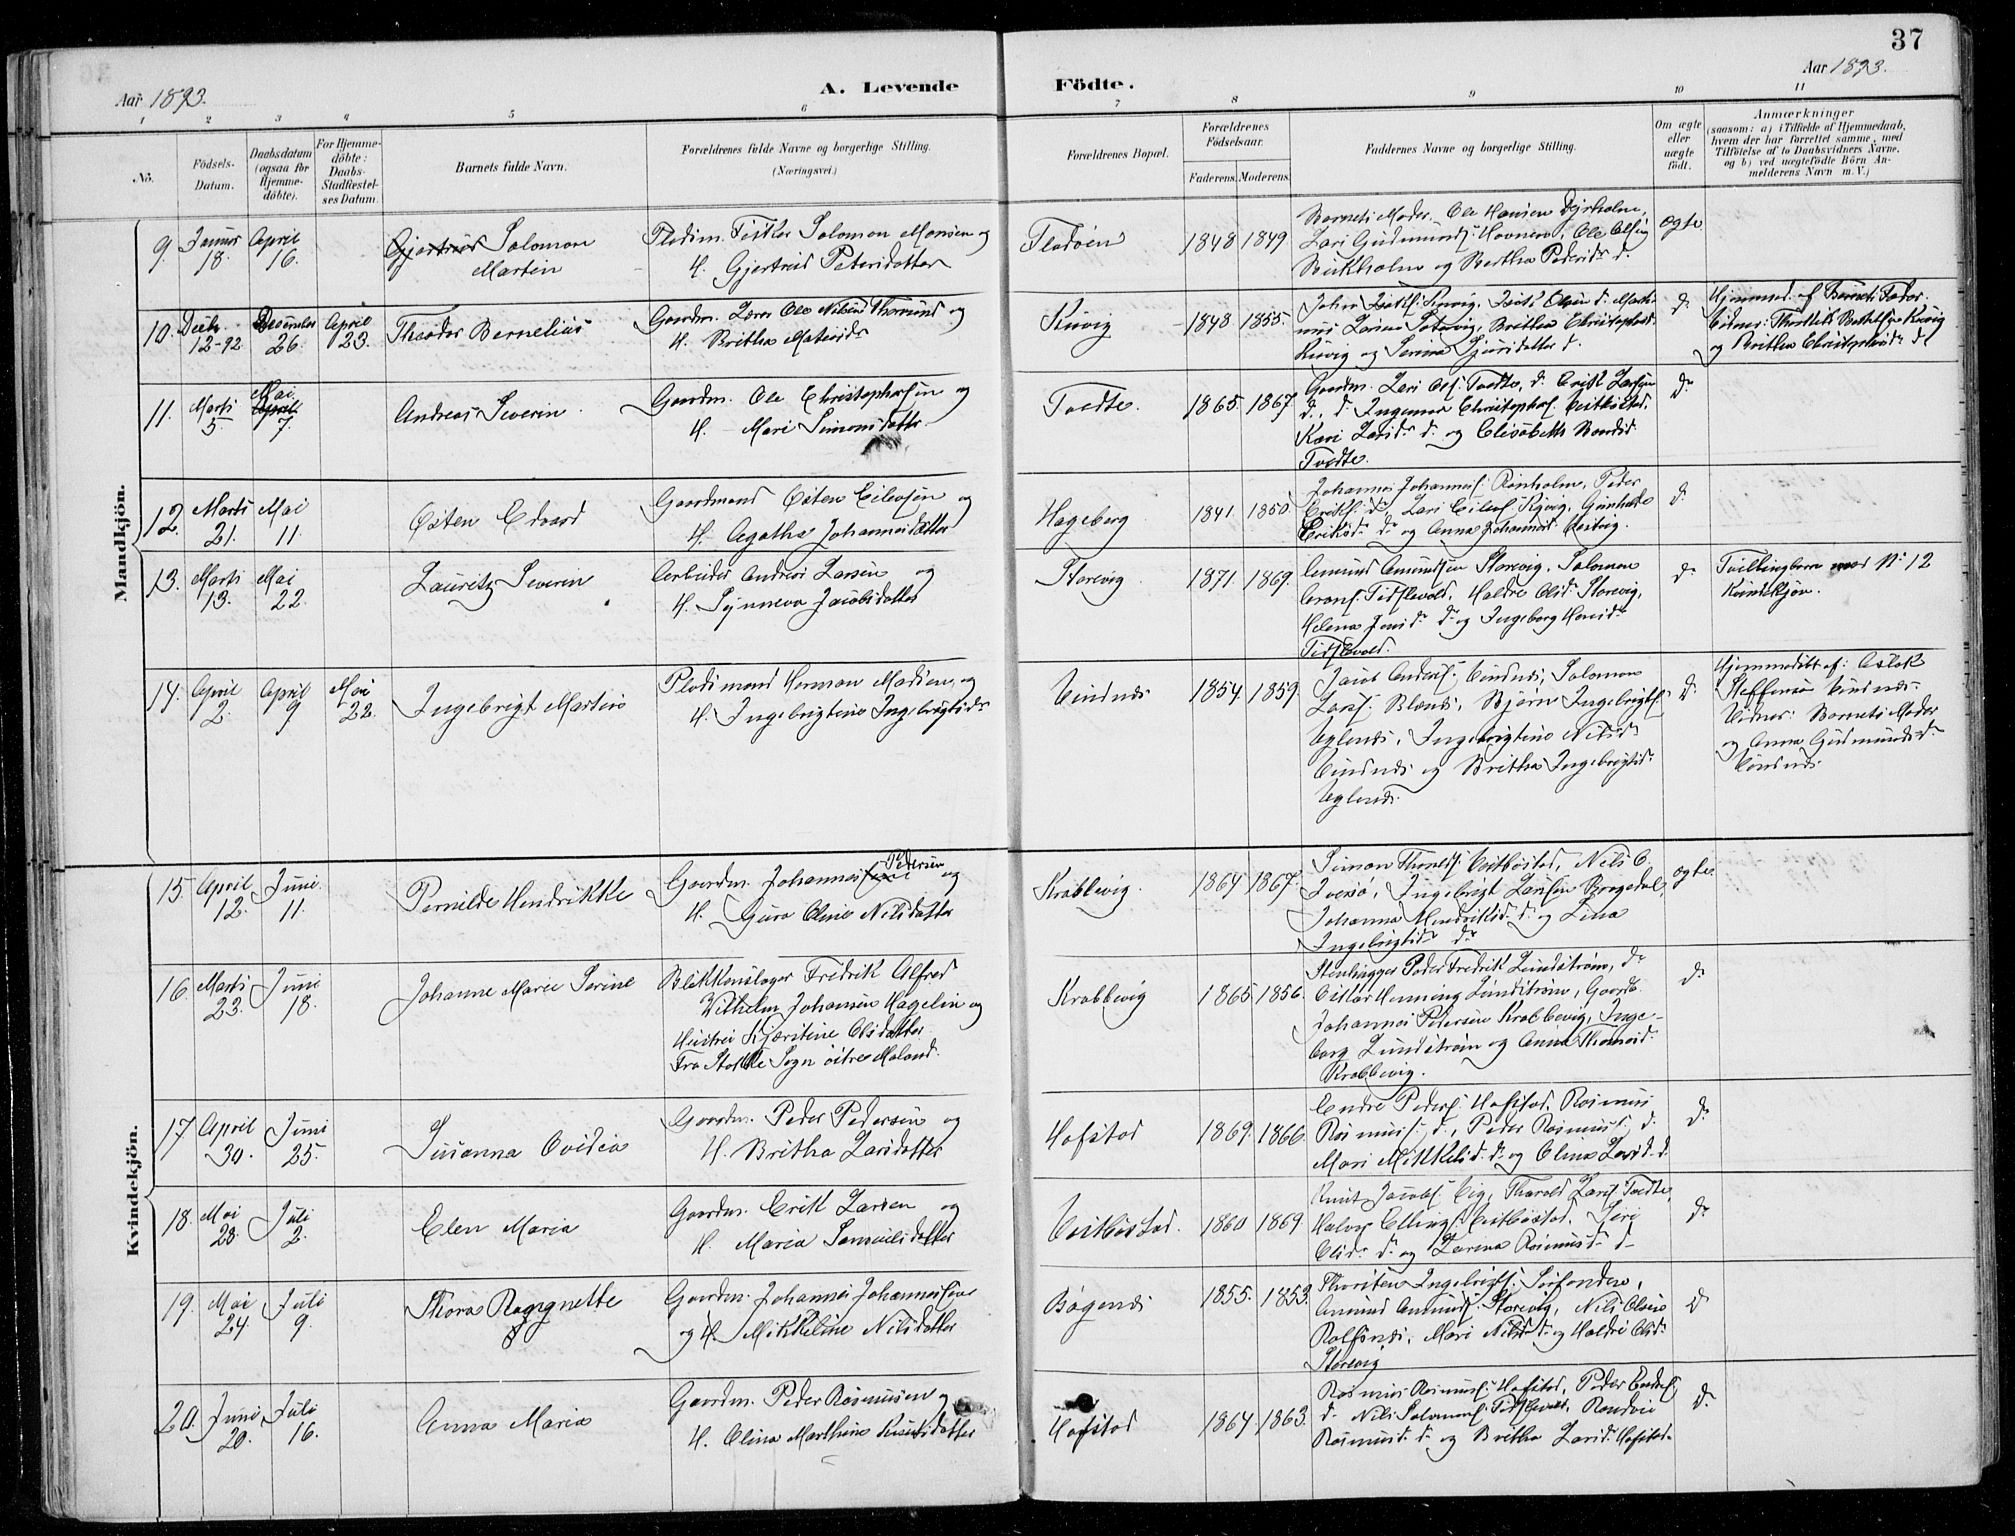 37
Aar 1893.
A. Levende
Födte.
Aar 1893.
1 2 3 4 5 6 7 8 9 10 11
No.
Födsels-
Datum.
Daabsdatum
(ogsaa for
Hjemme-
döbte).
For Hjemme-
döbte:
Daabs-
Stadfæstel-
ses Datum.
Barnets fulde Navn.
Forældrenes fulde Navne og borgerlige Stilling.
(Næringsvei.)
Forældrenes Bopæl.
Forældrenes
Födselsaar.
Faderens.
Moderens.
Faddernes Navne og borgerlige Stilling.
Om ægte
eller
uægte
födt.
Anmærkninger
(saasom: a) i Tilfælde af Hjemmedaab,
hvem der har forrettet samme, med
Tilföielse af to Daabsvidners Navne,
og b) ved uægtefödte Börn An-
melderens Navn m. V.)
Mandkjön.
9. Januar 18. April 16.
Gjertrud Salomon
Martin
Salomon Monsen og
H. Gjertrud Petersdatter
1848 1849
Barnets Moder. Ole Hansen Dyrholm,
og Bertha Pedersdr d.
ægte
10. Decbr. 12-92. December 26. April 23.
Theodor Bernelius
Gaardm. Lærer Ole Nilsen og
H. Britha Matsdr
Kuvig
1848 1855.
Britha Christophersd.
Kuvig og Serina Sjursdatter d.
d.
Hjemmed. af Barnets Fader.
Vidner: Kuvig
og Britha Christophersdr d.
11. Marts 5. Mai April 7.
Andreas Severin.
Gaardm. Ole Christophersen og
H. Mari Simonsdatter
Tvedte.
1865. 1867.
Gaardm. Lars Ols. Tvedte, d. Erik Larsen
d., d. Ingemar Christophers. Vestbøstad,
Kari Larsdr d. og Elisabeth
Tvedte.
dr
12. Marts 21. Mai 11.
Østen Edvard
Gaardmand Østen Eilevsen og
H. Agatha Johannesdatter
Hageberg
1841. 1850.
Johannes Johannes. Rønholm, Peder
Eriks. d., Lars Eilevs. Gunhilde
Eriksdr dr og Anna Johannesd.
d.
13. Marts 13. Mai 22.
Lauritz Severin
Arbeider Andreas Larsen og
H. Synneva Jacobsdatter
Storevig
1871. 1869.
Amund Amundsen Storevig, Salomon
Haldre Olsd. Storevig,
Helena dr og Ingeborg
d.
Tvillingbarn med No 12
Kvindekjøn.
14. April 2. April 9. Mai 22.
Ingebrigt Martin
Pladsmand Herman Madsen og
H. Ingebrigtine Ingebrigtsdr
Vindnes
1854. 1859.
Jacob Anders. Vindnes, Salomon
Lars. Bjørn Ingebrigts.
Uglenes, Ingebrigtine Nilsd.
Vindnes og Britha Ingebrigtsd.
Uglenes.
d.
Hjemmedøbt af: Aslak
Steffensen Vindnes.
Vidner: Barnets Moder
og Anna Gudmundsdr
Vindnes.
Kvindekjön.
15. April 12. Juni 11.
Pernilde Hendrikke
Gaardm. Johannes Pedersen og
H. Guro Oline Nilsdatter
Krabbevig.
1864 1867.
Simon Vestbøstad, Nils O.
Ingebrigt Larsen Borgedal,
Johanna Hendriksd. d. og Lina
Ingebrigtsdr dr
ægte.
16. Marts 23. Juni 18.
Johanne Marie Serine
Blikkenslager Fredrik Alfred
Vilhelm Johansen Hagelin og
Hustru Kjerstine Olsdatter
Fra Stokke Sogn østre Moland.
Krabbevig
1865 1856.
Stenhugger Peder Fredrik Lundstrøm, dr
Oskar Henning Lundstrøm, Gaardb.
Johannes Pedersen Krabbevig, Inge-
borg Lundstrøm og Anna
Krabbevig.
dr
17. April 30. Juni 25.
Susanna Ovidia
Gaardm. Peder Pedersen og
H. Britha Larsdatter
Hofstad
1869. 1866.
Endre Peders. Hofstad, Rasmus
Rasmus. d., Peder Rasmus. d.
Mari Mikkelsd. dr og Olina Larsd. d.
dr
18. Mai 28. Juli 2.
Elen Maria
Gaardm. Erik Larsen og
H. Maria Samuelsdatter
Vestbøstad.
1860 1869.
Knut Jacobs. Vig, Tharald Lars. Tvedte,
Halvor Ellings. Vestbøstad,
Olsdr dr og Larina Rasmusdr d
dr
19. Mai 24. Juli 9.
Thora Ragngnette
Gaardm. Johannes Johannessen
og H. Mikkeline Nilsdatter
Bøgenes
1855. 1853.
Thorsten Ingebrigts.
Amund Amunds. Storevig, Nils Olsen
Rolfsnes, Mari Nilsd. d. og Haldri Olsdr
Storevig
d.
20. Juni 20. Juli 16.
Anna Maria
Gaardm. Peder Rasmusen og
H. Olina Marthine Knutsdatter
Hofstad
1864. 1863.
Rasmus Rasmus. Hofstad, Peder Endres.
d. Nils Salomons.
Rasmusd. d. og Britha Larsd. Hofstad.
d.